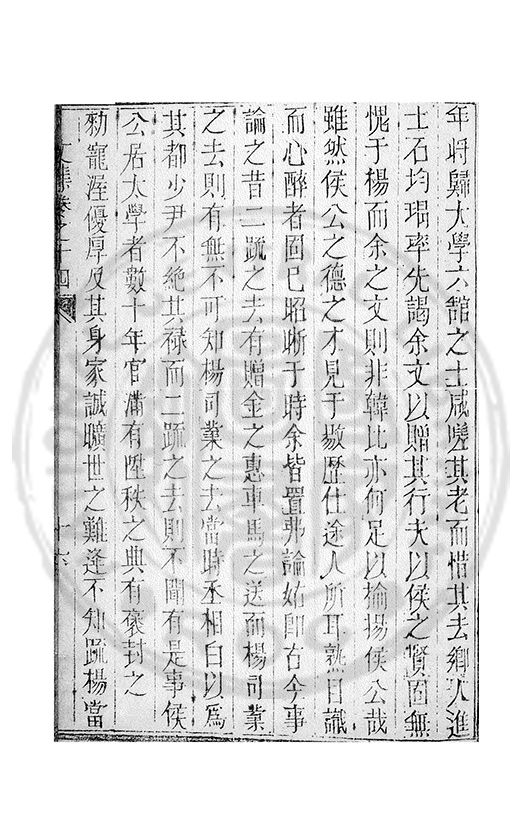 年將歸大學六館之士咸嗟其老而惜其去鄉人進
士石均瑺率先謁余文以贈其行夫以侯之賢固無
愧于楊而余之文則非韓比亦何足以揄揚侯公哉
雖然侯公之德之才見于敭歷仕途人所耳熟目識
而心醉者固已昭晰于時余皆置弗論姑即古今事
論之昔二䟽之去有贈金之惠車馬之送而楊司業
之去則有無不可知楊司業之去當時丞相白以爲
其都少尹不絶其禄而二䟽之去則不聞有是事侯
公居太學者數十年官滿有陞秩之典有褒封之
勑寵渥優厚及其身家誠曠世之難逢不知䟽楊當
文集卷之十四
十六